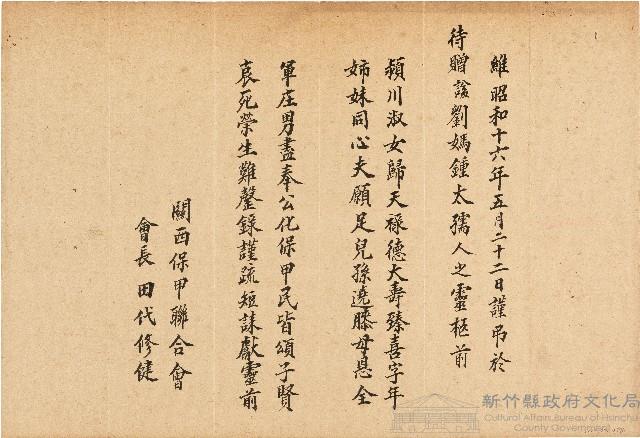 維昭和十六年五月二十二日謹弔於
待贈諡劉媽鍾太孺人之靈柩前
潁川淑女歸天祿德大壽臻喜字年
姊妹同心夫願足兒孫遶膝母恩全
軍庄男盡奉公化保甲民皆頌子賢
哀死榮生難罄錄謹疏短誄獻靈前
關西保甲聯合會
會長 田代修健
新竹縣政府文化局
Cultural Affairs Bureau of Hsinchu
County Government